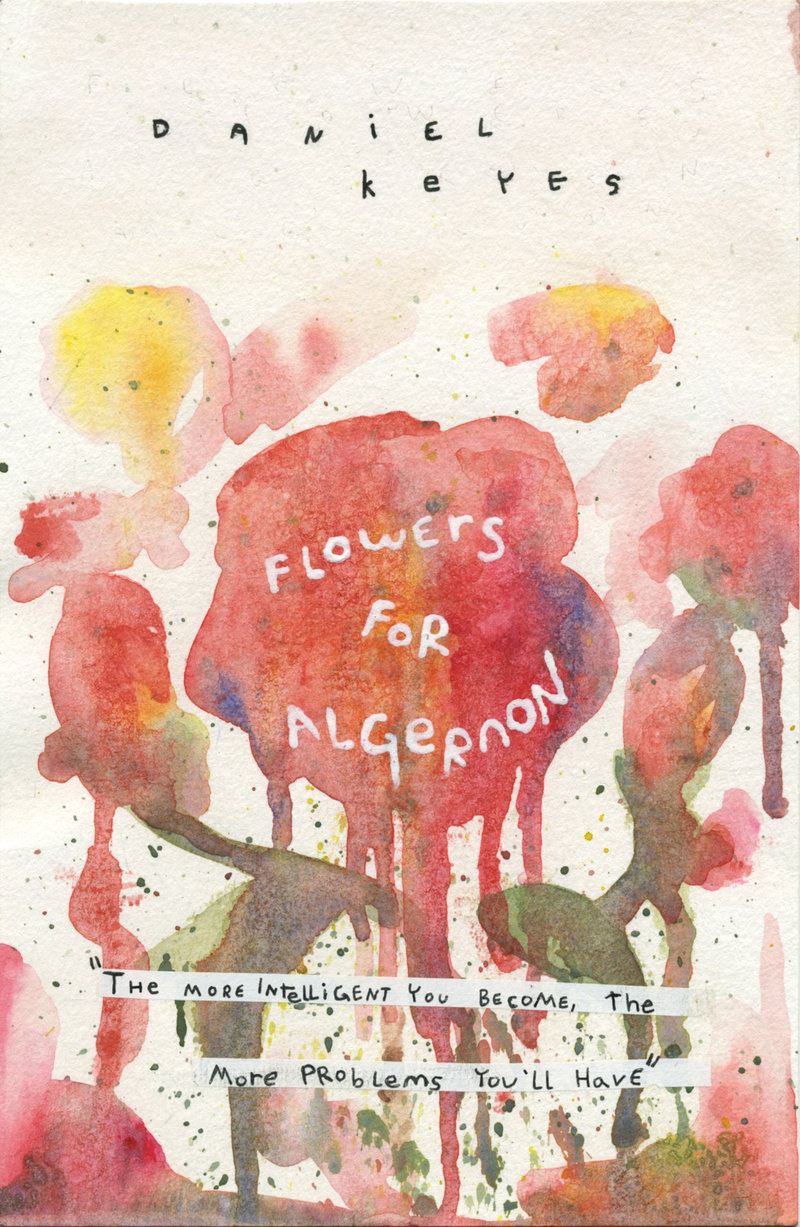 DANiEL
keYES
FLOWErS
FoR
ALGeRnON
"THE MORE INtElliGENT YOU BECOME, the
More PRObleMs YOU'll HAvE"